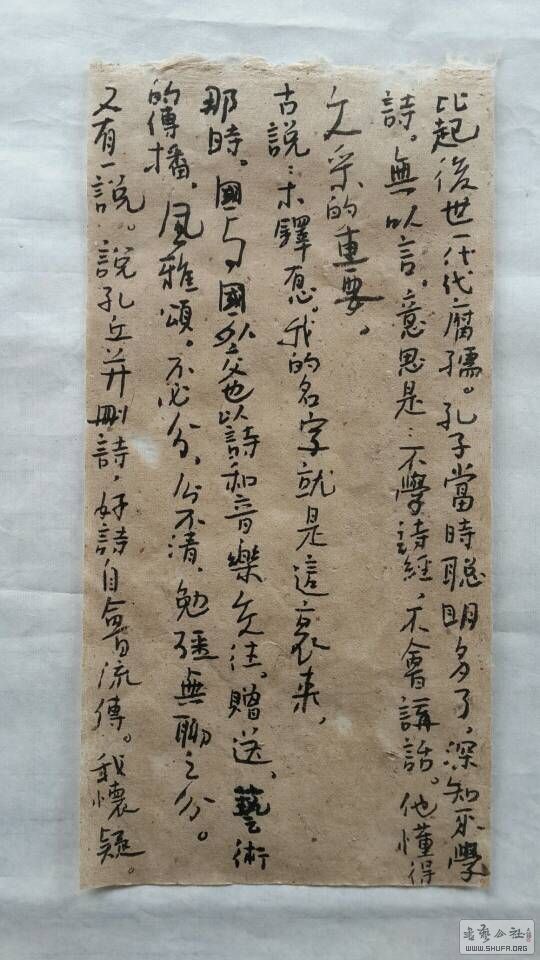 比起後世一代代腐孺。孔子當時聰明多了，深知不學
詩。無以言，意思是：不學詩經，不會講話。他懂得
文采的重要。
古説：木鐸息。我的名字就是這裏来，
那時。國与國外交也以詩和音樂交往。贈送、藝術
的傳播，風雅頌。不必分，分不清，勉强無聊之分。
又有一説。説孔丘并刪詩，好詩自會流傳。我懷疑。
書藝公社
WWW.SHUFA.ORG